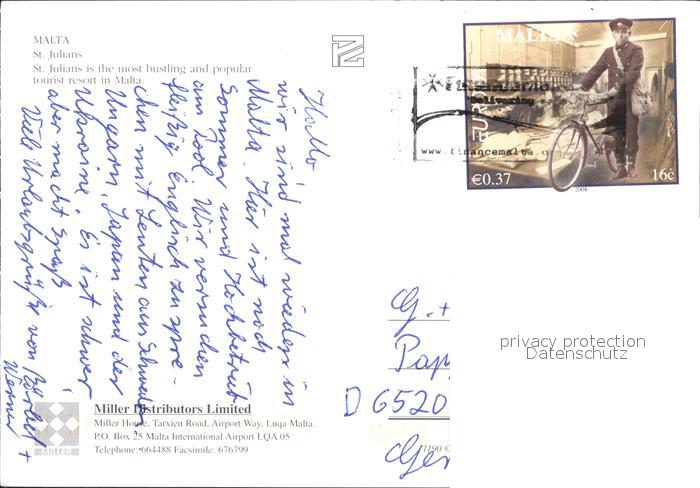 MALTA
St. Julians
St. Julians is the most bustling and popular
tourist resort in Malta.
Hallo
wir sind mal wieder in
Malta. Hier ist noch
Sommer und Hochbetrieb
am Pool. Wir versuchen
fleißig Englisch zu spre-
chen mit Leuten aus Schweden,
Ungarn, Japan und der
Ukraine. Es ist schwer
aber macht Spaß
Viele Urlaubsgrüße von Bärbel +
Werner
Miller Distributors Limited
Miller House, Tarxien Road, Airport Way, Luqa Malta.
P.O. Box 25 Malta International Airport LQA 05
Telephone: 664488 Facsimile: 676799
MILLER
MALTA
Delivering
www.financemalta.o
€0.37
16c
2008
G. +
Pap
D 6520
Ger
1190
privacy protection
Datenschutz